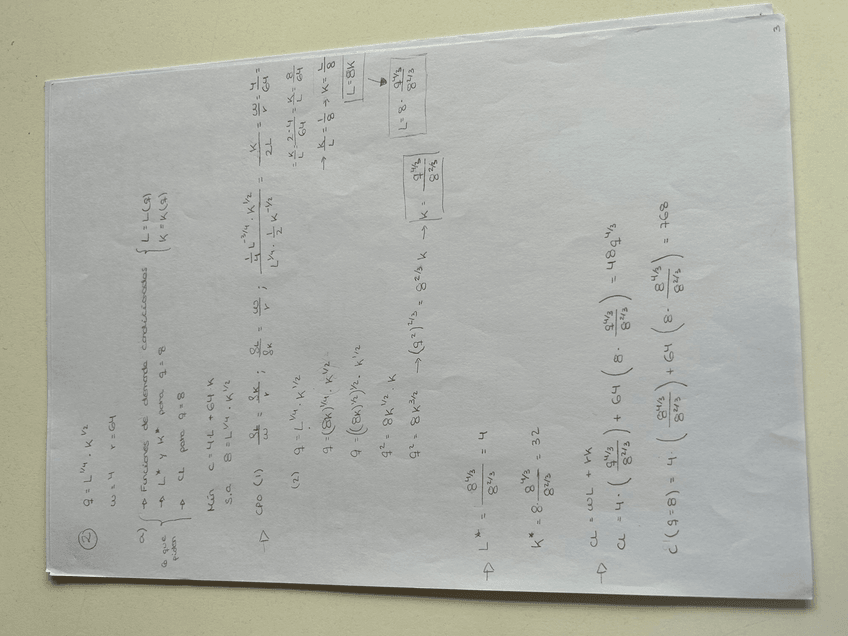 ② q = L^1/4 · K^1/2
w = 4 r = 64
a) → Funciones de demanda condicionadas { L = L(q) K = K(q)
lo que piden → L* y K* para q = 8
→ CL para q = 8
Min C = 4L + 64K
s.a 8 = L^1/4 · K^1/2
→ CPO (1) = ; = w/r ; (1/4 L^-3/4 · K^1/2)/(L^1/4 · 1/2 K^-1/2) = K/2L = w/r = 4/64 =
= K/L = 2·4/64 = K/L = 8/64
→ K/L = 1/8 → K = L/8
L = 8K
(2) q = L^1/4 · K^1/2
q = (8K)^1/4 · K^1/2
q = ((8K)^1/2)^1/2 · K^1/2
q² = 8K^1/2 · K
q² = 8K^3/2 → (q²)^2/3 = 8^2/3 K → K = q^4/3 / 8^2/3 L = 8 · q^4/3 / 8^2/3
→ L* = 8^4/3 / 8^2/3 = 4
K* = 8 · 8^4/3 / 8^2/3 = 32
→ CL = wL + rK
CL = 4 · (q^4/3 / 8^2/3) + 64 (8 · q^4/3 / 8^2/3) = 48q^4/3
C(q=8) = 4 · (8^4/3 / 8^2/3) + 64 (8 · 8^4/3 / 8^2/3) = 768
3